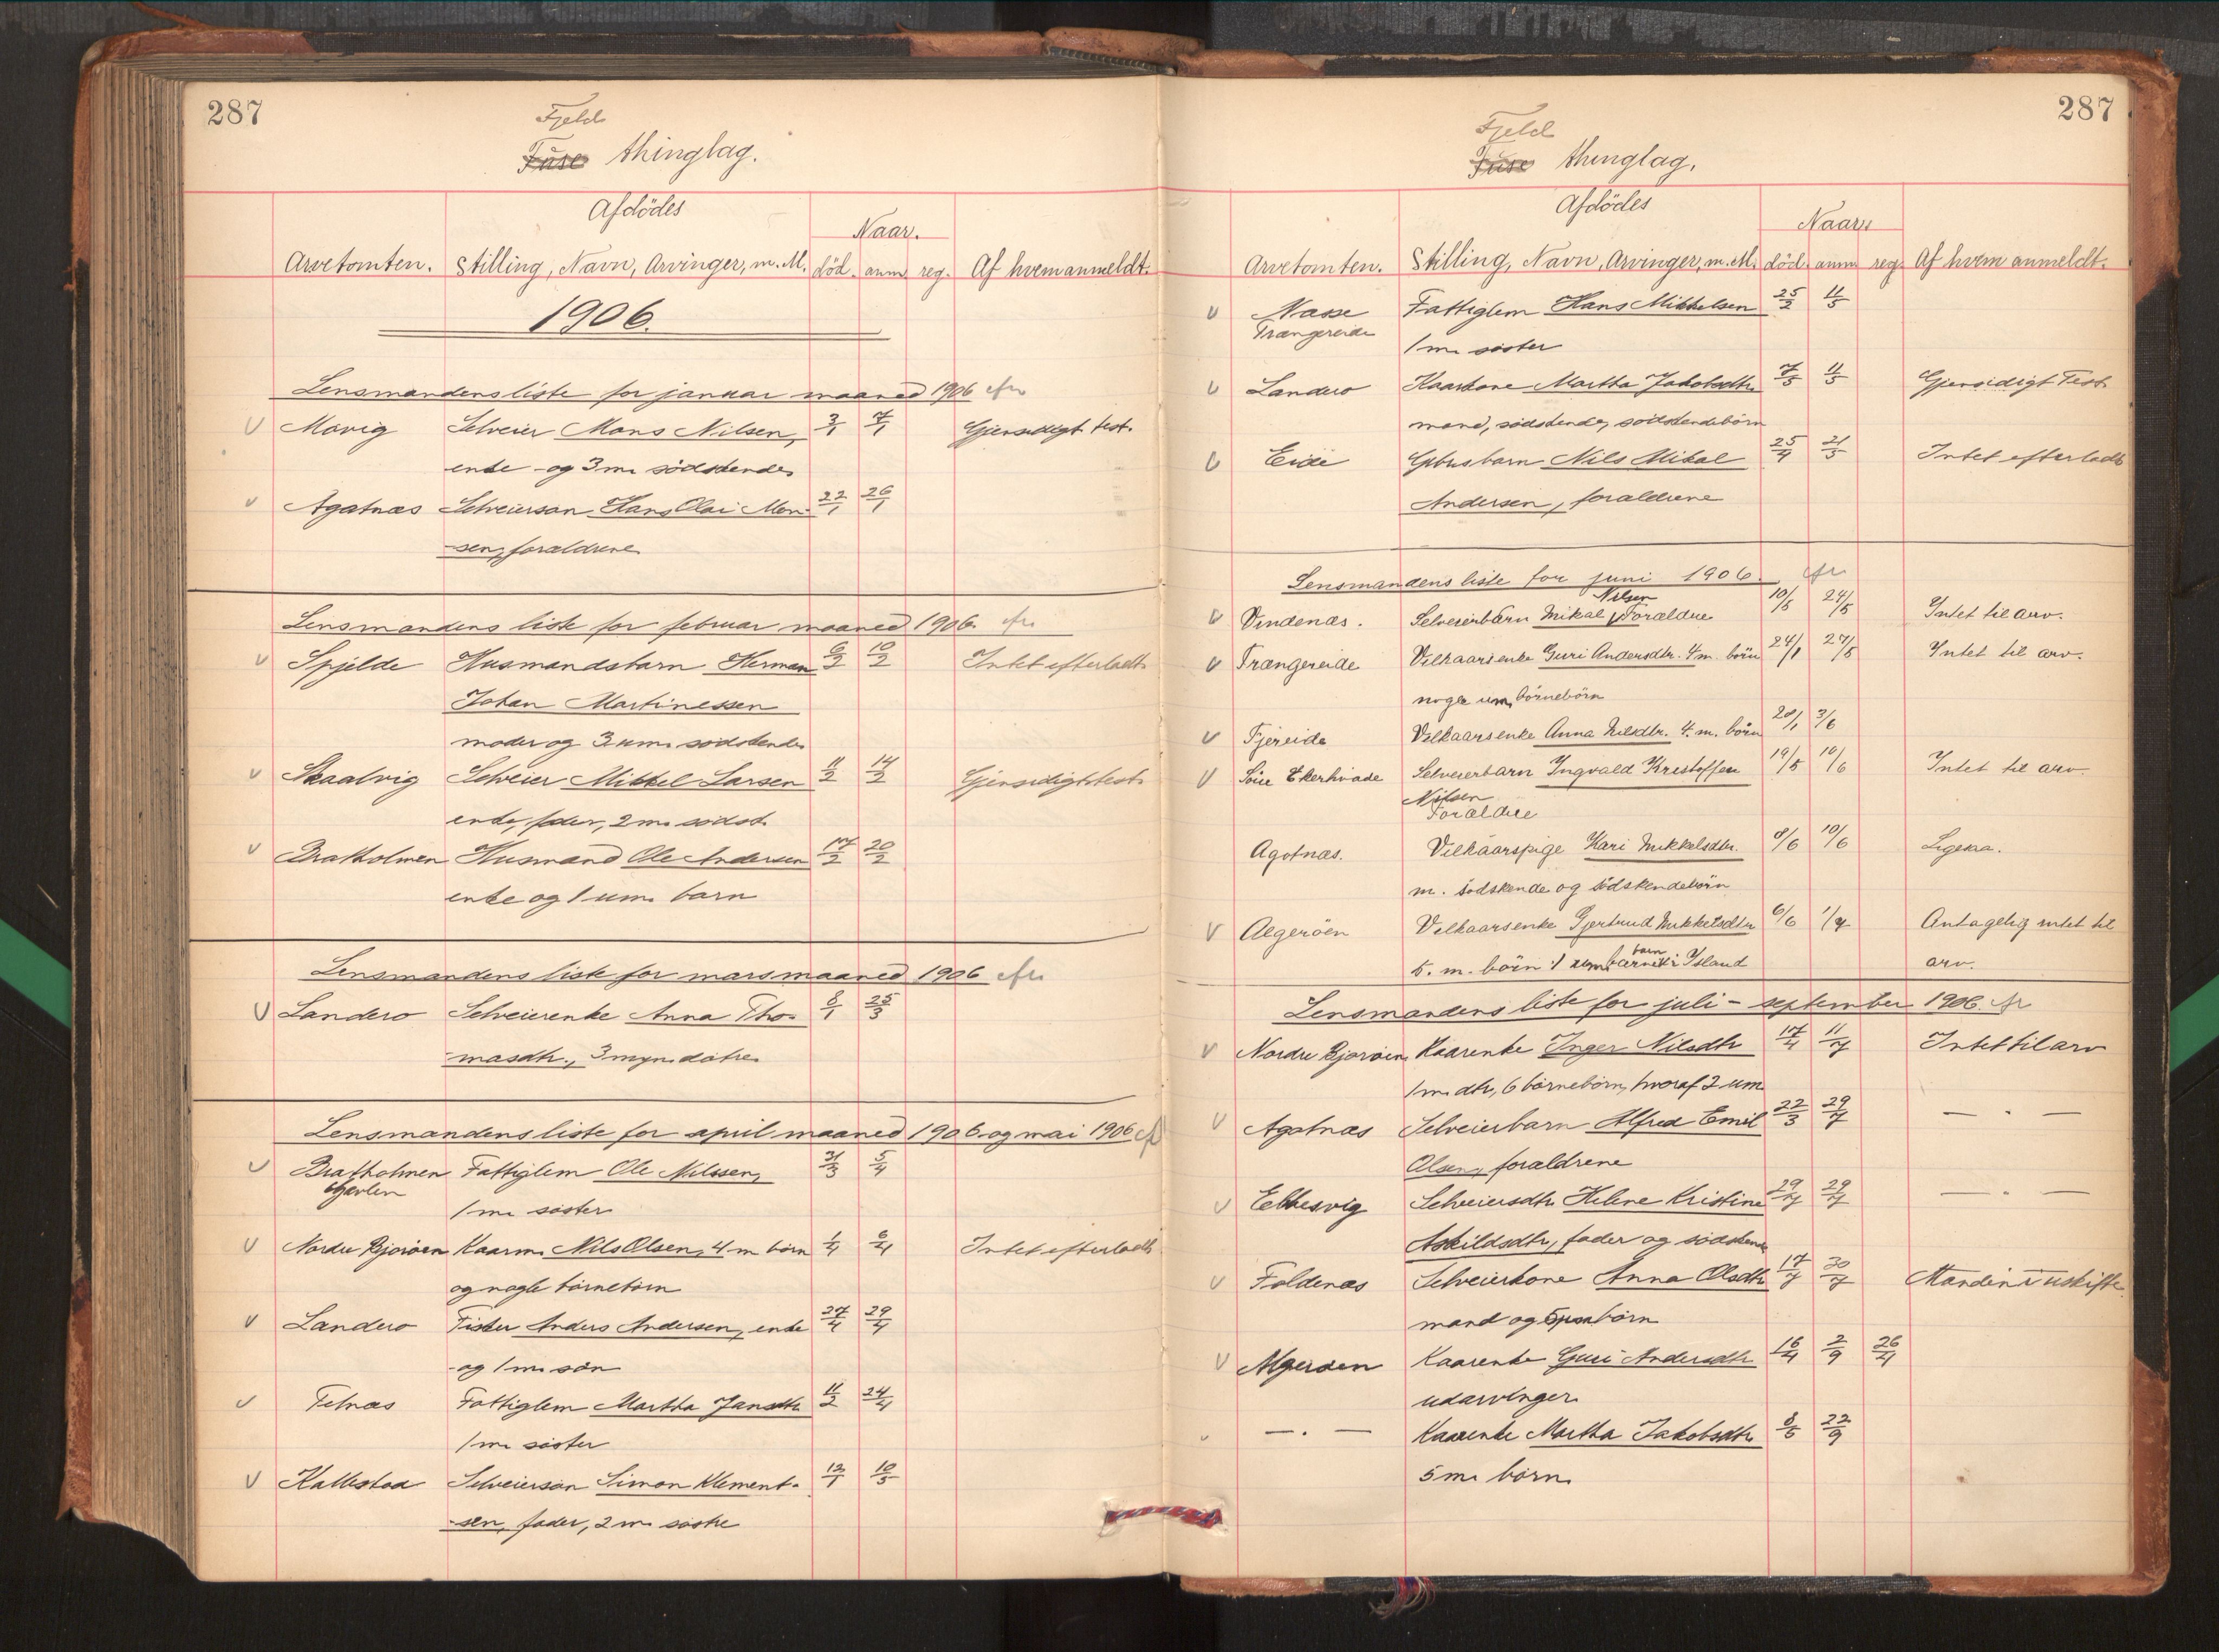 287
Fjeld
Fuse thinglag.
Afdödes
Naar.
Arvetomten. Stilling, Navn, Arvinger, m. M. död. anm. reg. Af hvem anmeldt.
1906.
Lensmandens liste for januar maaned 1906
Movig Selveier Mons Nilsen, 3/1 7/1 Gjensidigt test.
enke og 3 m. södskende
Agatnæs Selveiersøn Hans Olai Mon- 22/1 26/1
sen, forældrene
Lensmandens liste for februar maaned 1906.
Spjelde Husmandsbarn Herman 6/2 10/2 Intet efterladt
Johan Martinessen
moder og 3 um. södskende
Skaalvig Selveier Mikkel Larsen 11/2 14/2 Gjensidigt test.
enke, fader, 2 m. södsk.
Bratholmen Husmand Ole Andersen 17/2 20/2
enke og 1 um. barn
Lensmandens liste for mars maaned 1906
Landero Selveierenke Anna Tho- 8/1 25/3
masdtr., 3 myn. døtre
Lensmandens liste for april maaned 1906 og mai 1906
Bratholmen Fattiglem Ole Nilssen, 31/3 5/4
1 m. søster
Nordre Bjorøen Kaarm. Nils Olsen, 4 m börn 1/4 6/4 Intet efterladt
og nogle börnebörn
Landero Fisker Anders Andersen, enke 27/4 29/4
og 1 m. søn
Telnæs Fattiglem Martha Jansdtr. 11/2 24/4
1 m. søster
Kallestad Selveiersøn Simon Klement- 12/1 10/5
sen, fader, 2 m. søstre
287
Fjeld
Fuse thinglag.
Afdödes
Naar.
Arvetomten. Stilling, Navn, Arvinger, m. M. död. anm. reg. Af hvem anmeldt.
Nasse Fattiglem Hans Mikkelsen 25/2 11/5
Trængereide
1 m. søster
Landero Kaarkone Martha Jakobsdtr. 7/5 11/5 Gjensidigt Test.
mand, södskende, södskendebörn
Eide Gbrusbarn Nils Mikal 25/4 21/5 Intet efterladt
Andersen, forældrene
Lensmandens liste for juni 1906.
Nilsen
Vindenæs. Selveierbarn Mikal, Forældre 10/5 24/5 Intet til arv.
Trængereide Vilkaarsenke Guri Andersdtr. 4 m. börn 24/1 27/5 Intet til arv.
nogle um. börnebörn
Fjereide Vilkaarsenke Anna Nilsdtr. 4. m. börn 28/1 3/6
Söre Ekerhovde Selveierbarn Ingvald Kristoffer 19/5 10/6 Intet til arv.
Nilsen
Forældre
Agotnæs. Vilkaarspige Kari Mikkelsdtr. 8/6 10/6 Ligesaa.
m. södskende og södskendebörn
Algeröen Vilkaarsenke Gjertrud Mikkelsdtr 6/6 1/7 Antagelig intet til
barn
5. m. börn 1 um. i Island arv.
Lensmandens liste for juli - september 1906.
Nordre Bjorøen Kaarenke Inger Nilsdtr 17/4 11/7 Intet til arv
1 m. dtr, 6 börnebörn, hvoraf 2 um
Agotnæs Selveierbarn Alfred Emil 22/3 29/7 — " —
Olsen, forældrene
Ebbesvig Selveiersdtr. Helene Kristine 29/7 29/7 — " —
Askildsdtr, fader og södskende
Foldenæs Selveierkone Anna Olsdtr 17/7 30/7 Manden i uskifte
mand og 5 börn
Algerøen Kaarenke Guri Andersdtr 16/4 2/9 26/4
udarvinger
— . — Kaarenke Martha Jakobsdtr 8/5 22/9
5 m. börn.